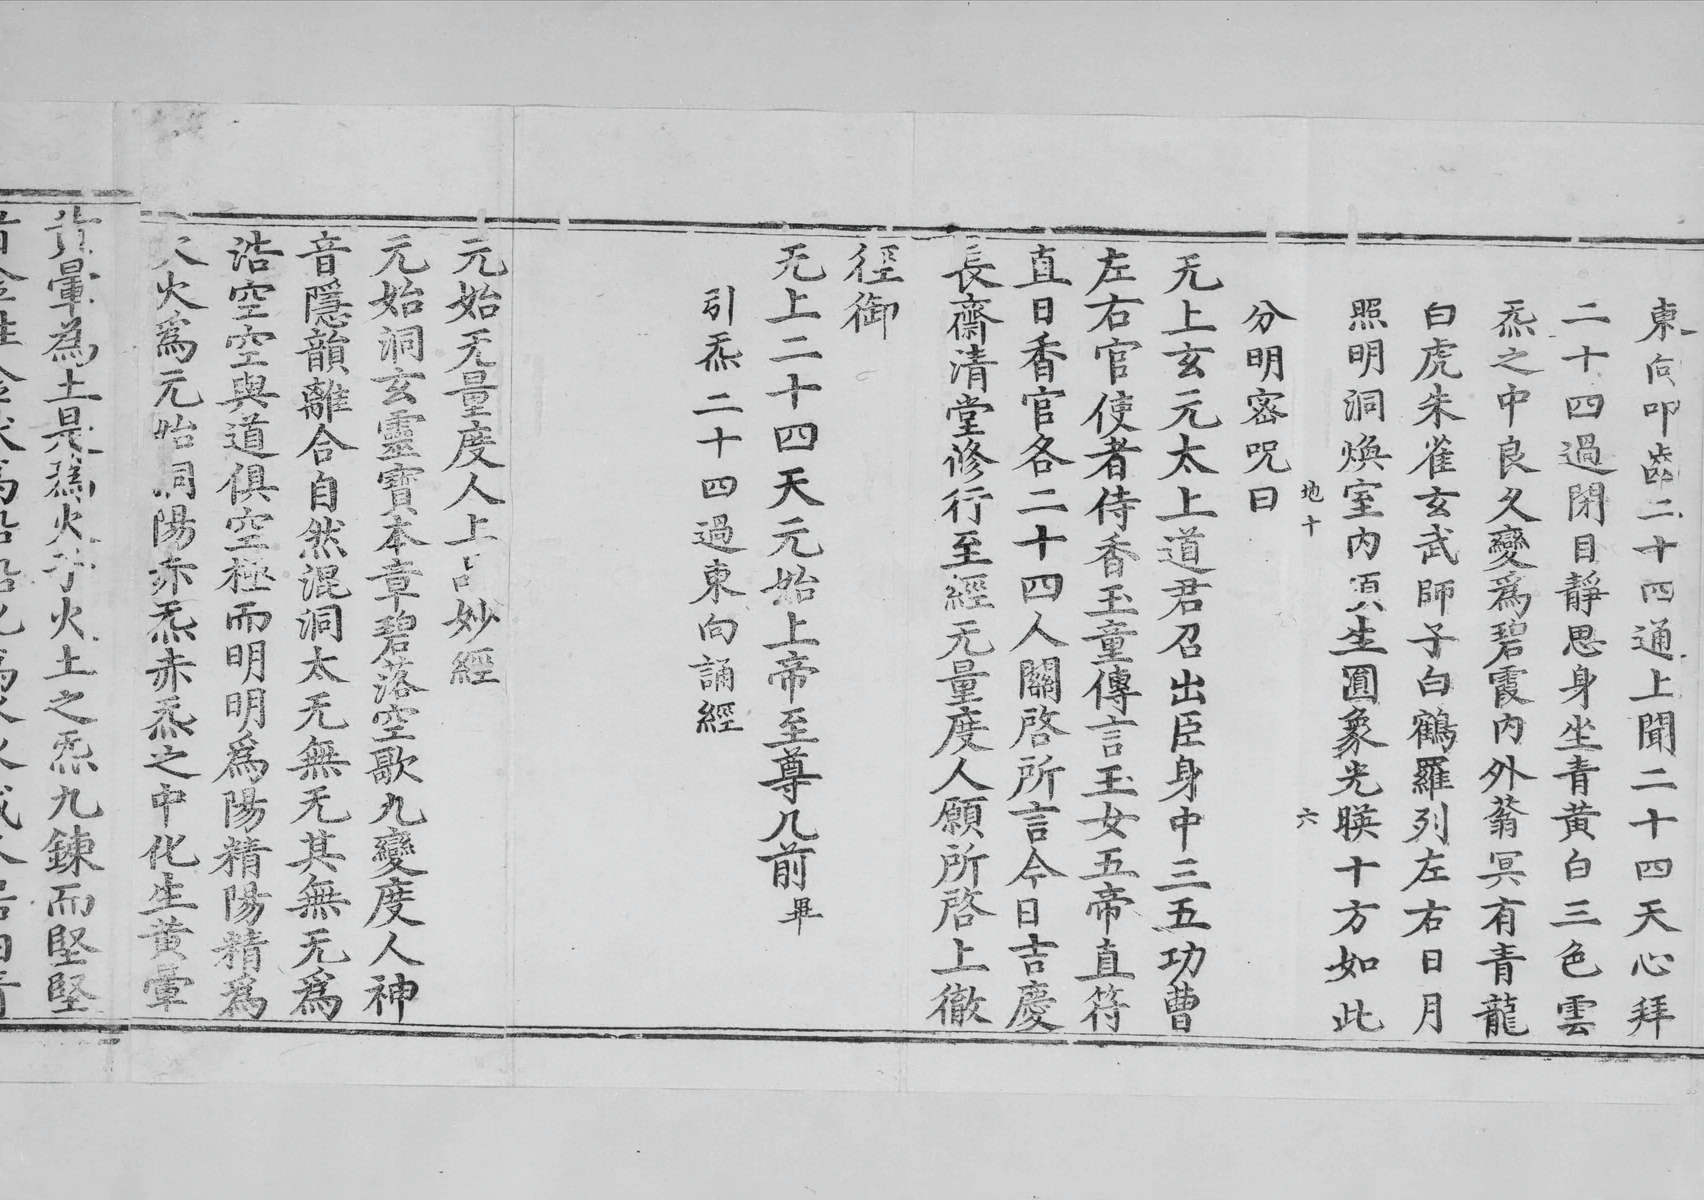 東向叩齒二十四通上聞二十四天心拜
二十四過閉目靜思身坐青黃白三色雲
炁之中良久變爲碧霞內外蓊冥有青龍
白虎朱雀玄武師子白鶴羅列左右日月
照明洞煥室內項生圓象光暎十方如此
地十 六
分明密咒曰
无上玄元太上道君召出臣身中三五功曹
左右官使者侍香玉童傳言玉女五帝直符
直日香官各二十四人關啓所言今日吉慶
長齋清堂修行至經无量度人願所啓上徹
徑御
无上二十四天元始上帝至尊几前畢
引炁二十四過東向誦經
元始无量度人上品妙經
元始洞玄靈寶本章碧落空歌九變度人神
音隱韻離合自然混洞太无無无其無无爲
浩空空與道俱空極而明明爲陽精陽精爲
火爲元始洞陽赤炁赤炁之中化生黃暈
黃暈為土是為火孕火土之炁九鍊而堅堅